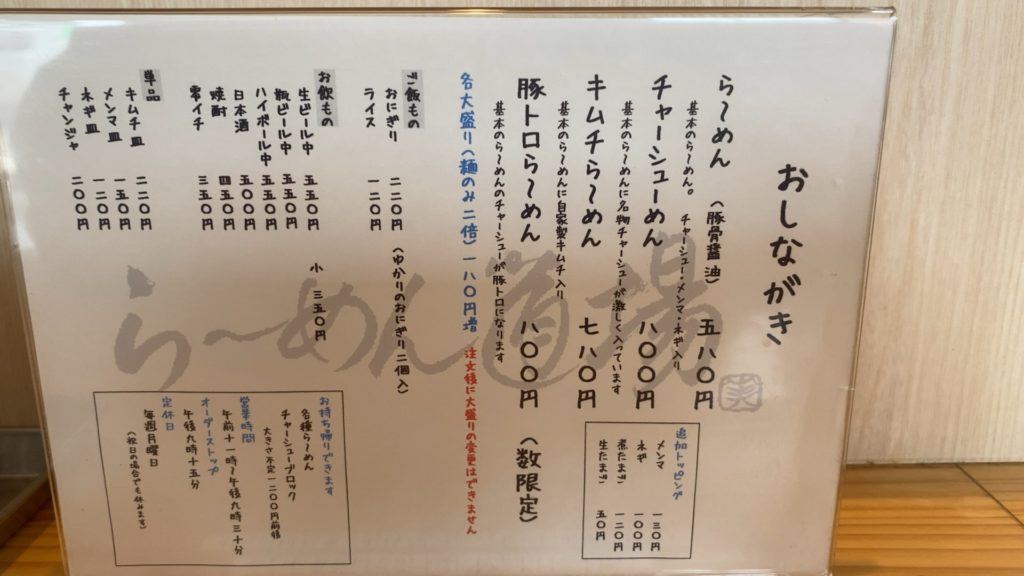 おしながき
ら〜めん (豚骨醤油) 五八〇円
基本のら〜めん。 チャーシュー・メンマ・ネギ入り
チャーシューめん 八〇〇円
基本のら〜めんに名物チャーシューが激しく入っています
キムチら〜めん 七八〇円
基本のら〜めんに自家製キムチ入り
豚トロら〜めん 八〇〇円 (数限定)
基本のら〜めんのチャーシューが豚トロになります
各大盛り(麺のみ二倍) 一八〇円増 注文後に大盛りの変更はできません
追加トッピング
メンマ 一三〇円
ネギ 一〇〇円
煮たまご 一二〇円
生たまご 五〇円
ご飯もの
おにぎり 二二〇円 (ゆかりのおにぎり二個入)
ライス 一二〇円
お飲もの
生ビール中 五五〇円 小 三五〇円
瓶ビール中 五五〇円
ハイボール中 五五〇円
日本酒 五〇〇円
焼酎 四五〇円
零イチ 三五〇円
単品
キムチ皿 二二〇円
メンマ皿 一五〇円
ネギ皿 一二〇円
チャンジャ 二〇〇円
お持ち帰りできます
各種ら〜めん
チャーシューブロック
大きさ不定一二〇〇円前後
営業時間
午前十一時〜午後九時三十分
オーダーストップ
午後九時十五分
定休日
毎週月曜日
(祝日の場合でも休みます)
ら〜めん道場